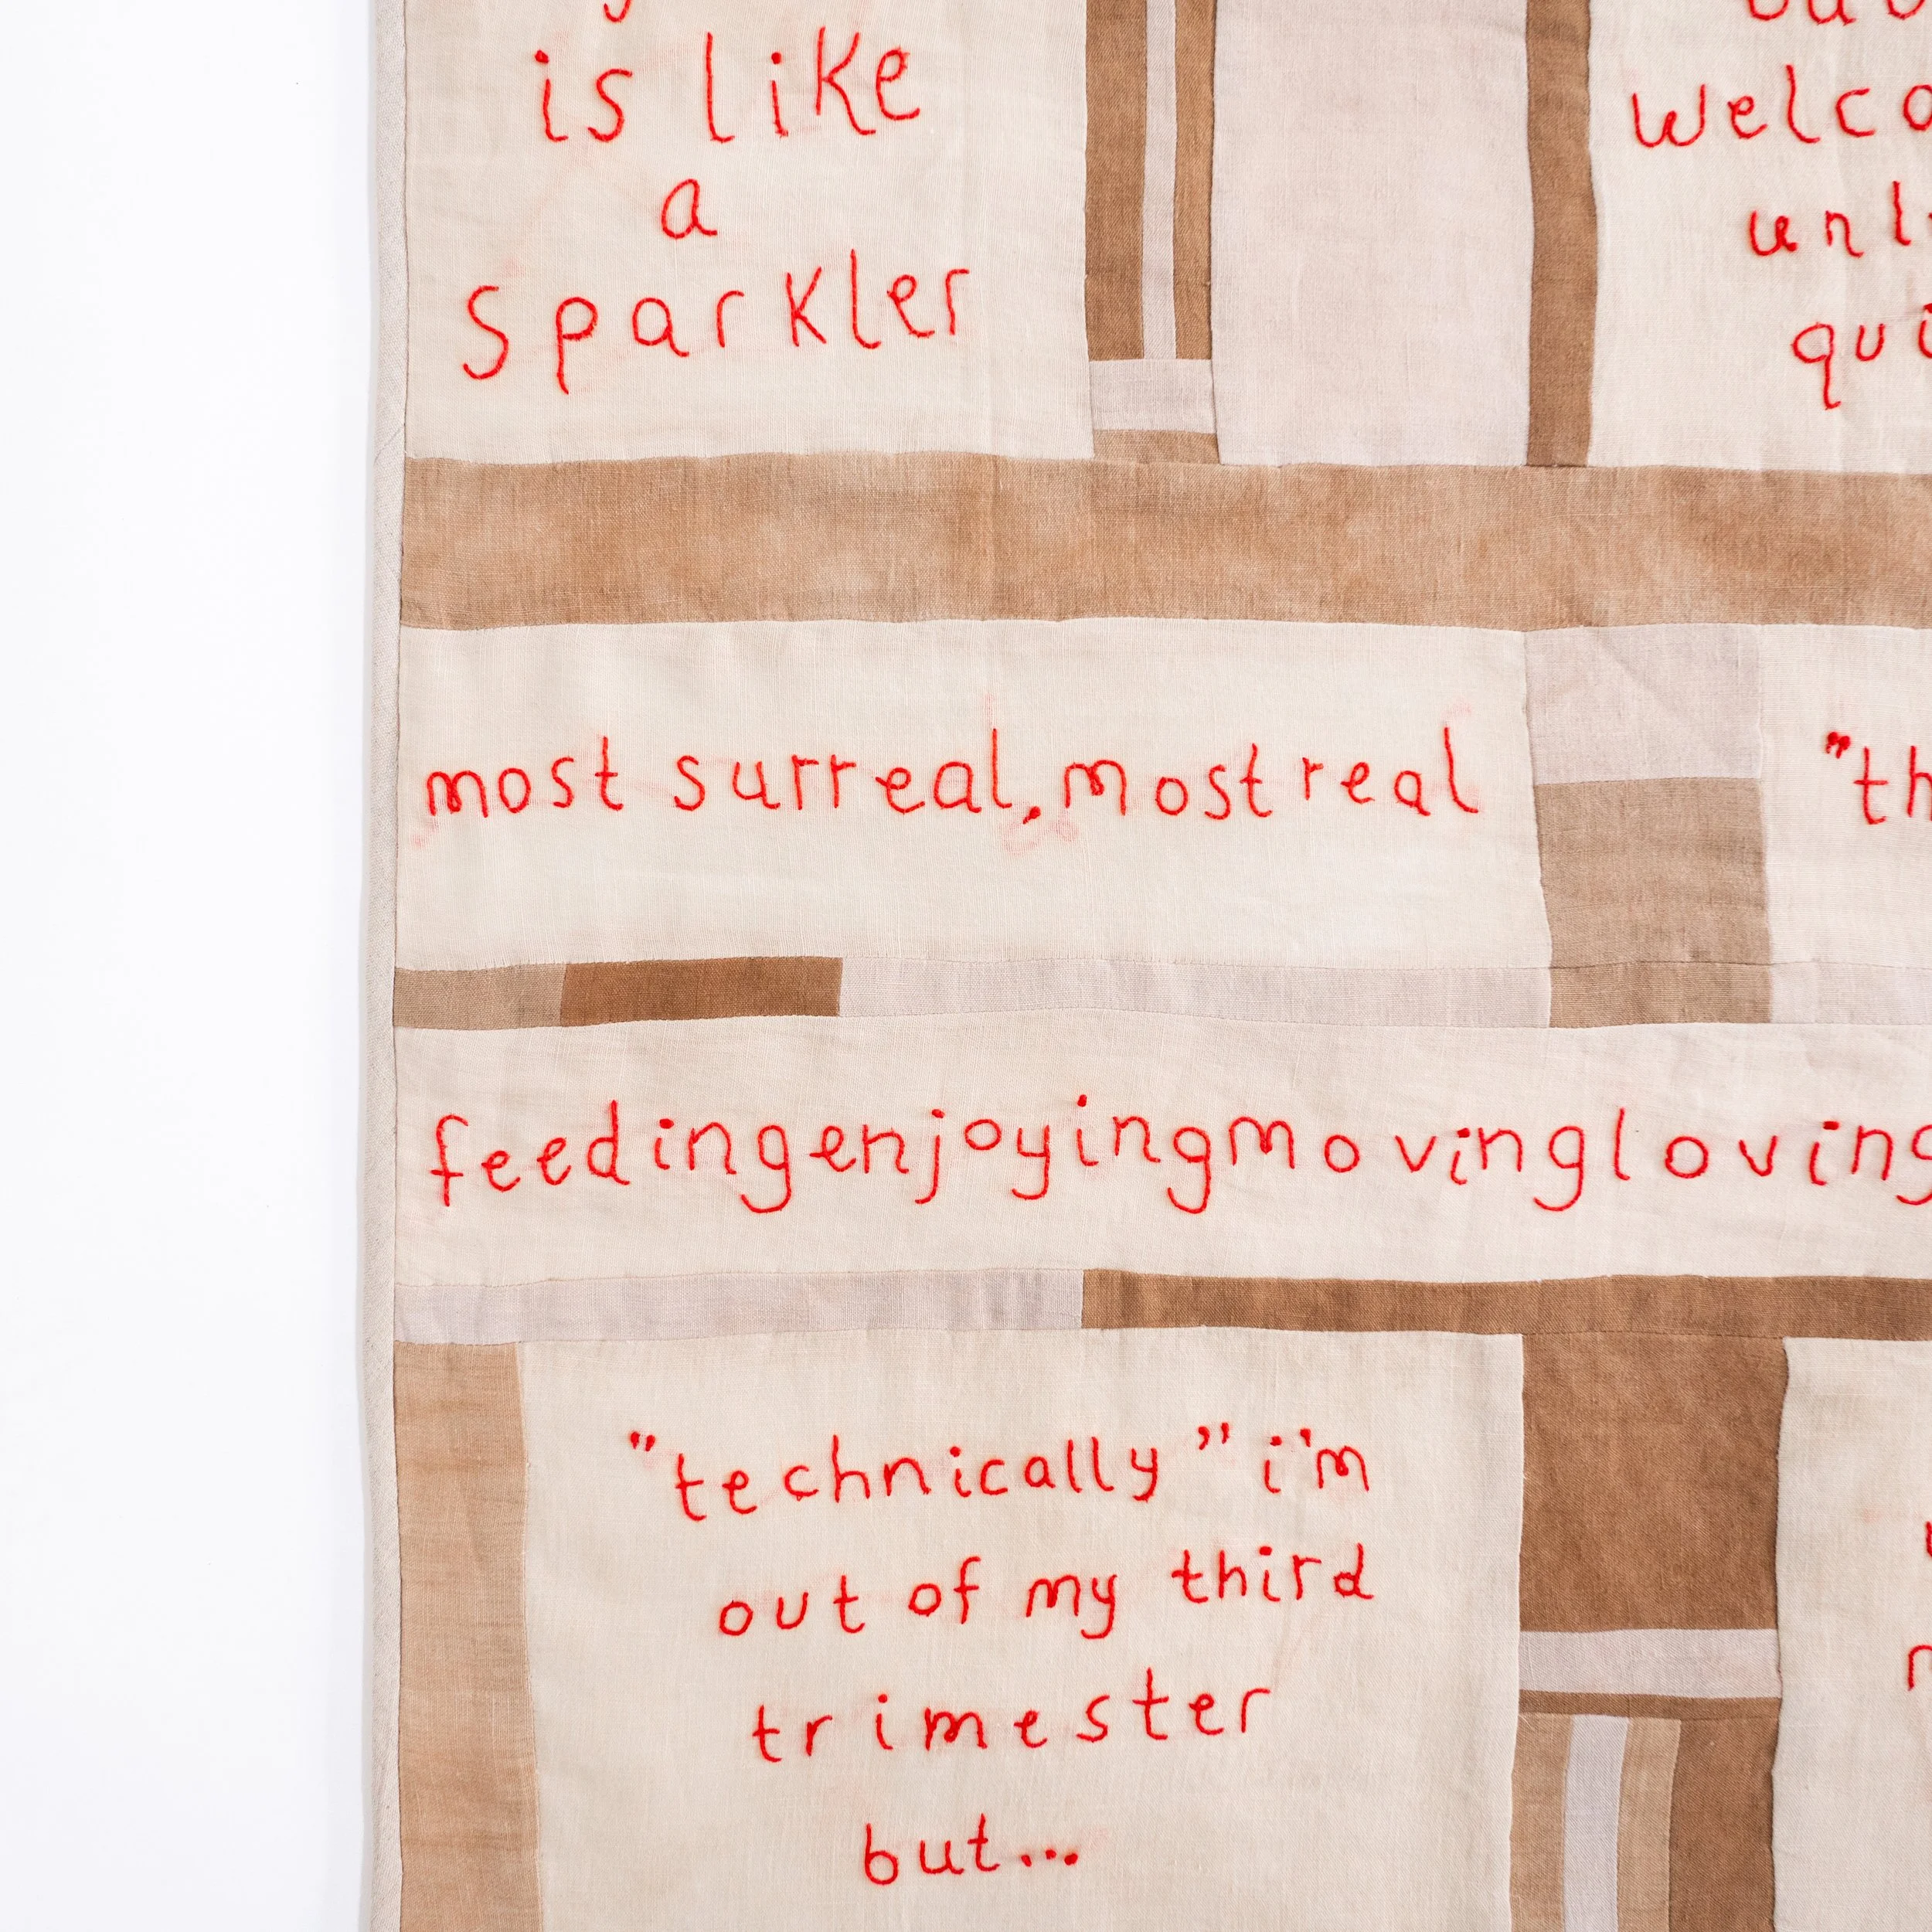 is like
a
sparkler
most surreal, most real
"th
feedingenjoyingmovingloving
"technically" i'm
out of my third
trimester
but...